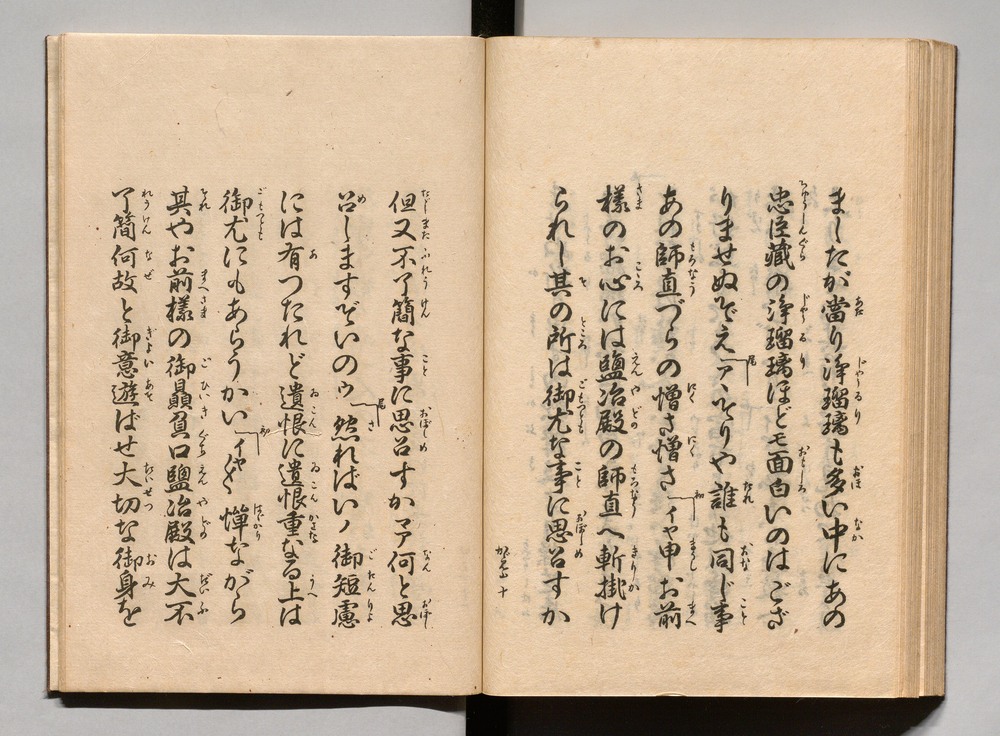 ましたが當り浄瑠璃も多い中にあの
忠臣藏の浄瑠璃ほどモ面白いのはござ
りませぬぞえ尾アヽそりや誰も同じ事
あの師直づらの憎さ憎さ初イヤ申お前
樣のお心には鹽冶殿の師直へ斬掛け
られし其の所は御尤な事に思召すか
十
但又不了簡な事に思召すかマア何と思
召しますぞいのウ尾然ればいノ御短慮
には有つたれど遺恨に遺恨重なる上は
御尤にもあらうかい初イヤ〳〵憚ながら
其やお前樣の御贔屓口鹽冶殿は大不
了簡何故と御意遊ばせ大切な御身を